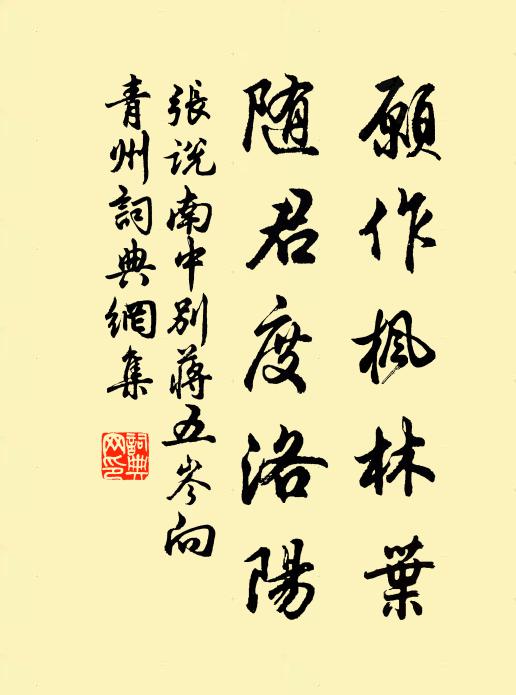 願作楓林葉
随君度洛陽
張說南中别蒋五岑向
青州詞典網集
詞典网印